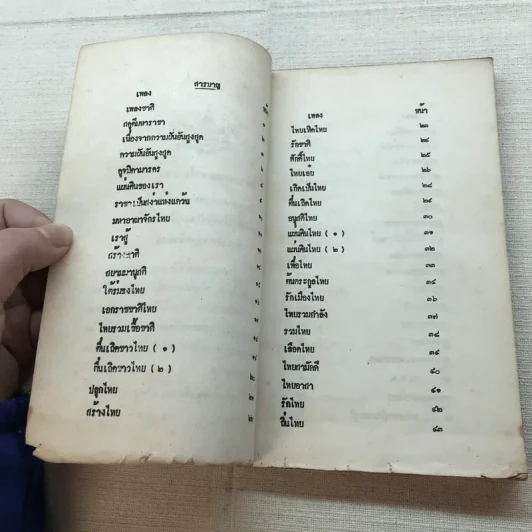 สารบาญ
เพลง
เพลงชาติ ๑
สดุดีมหาราชา ๑
เนื่องจากความฝันอันสูงสุด ๒
ความฝันอันสูงสุด
ดุจบิดามารดร
แผ่นดินของเรา
ราชาเป็นสง่าแห่งแคว้น
มหาอาณาจักรไทย
เราสู้
สร้างชาติ
สยามมานุสติ
ใต้ร่มธงไทย
เอกราชชาติไทย
ไทยรวมเชื้อชาติ
ตื่นเถิดชาวไทย ( ๑ )
ตื่นเถิดชาวไทย ( ๒ )
ปลุกไทย
สร้างไทย
เพลง หน้า
ไทยเทิดไทย ๒๓
รักชาติ ๒๔
ศักดิ์ไทย ๒๕
ไทยเอ๋ย ๒๖
เกิดเป็นไทย ๒๘
ตื่นเถิดไทย ๒๙
อนุสติไทย ๓๐
แผ่นดินไทย ( ๑ ) ๓๑
แผ่นดินไทย ( ๒ ) ๓๒
เพื่อไทย ๓๓
ต้นตระกูลไทย ๓๔
รักเมืองไทย ๓๖
ไทยรวมกำลัง ๓๗
รวมไทย ๓๘
เลือดไทย ๓๙
ไทยสามัคคี ๔๐
ไทยอาสา ๔๑
รักไทย ๔๒
ถิ่นไทย ๔๓